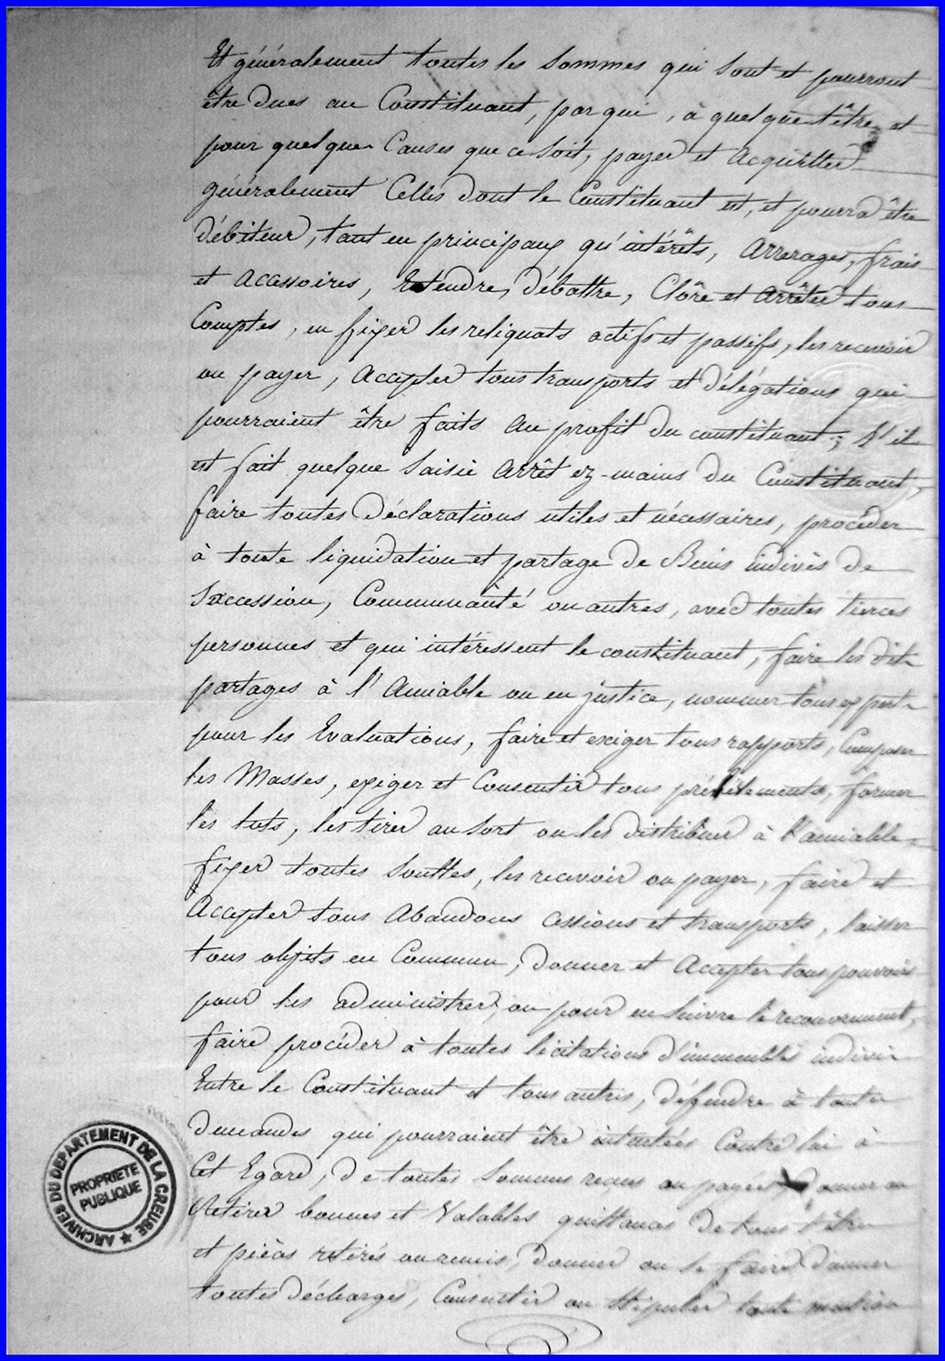 Et généralement toutes les sommes qui sont et pourront
être dues au Constituant, par qui, à quelque titre et
pour quelque Causes que ce soit, payer et Acquitter
généralement Celles dont le Constituant est, et pourra être
débiteur, tant en principaux qu'intérêts, Arrerages, frais
et acessoires, Entendre, débattre, Clôre et Arrêter tous
Comptes, en fixer les reliquats actifs et passifs, les recevoir
ou payer, Accepter tous transports et délégations qui
pourraient être faits au profit du constituant; S'il
est fait quelque saisie Arrêt ez-mains du Constituant,
faire toutes déclarations utiles et nécessaires, procéder
à toute liquidation et partage de Biens indivis de
Succession, Communauté ou autres, avec toutes tierces
personnes et qui intéressent le constituant, faire les dits
partages à l'Amiable ou en justice, nommer tous expert
pour les Evaluations, faire et exiger tous rapports, Composer
les Masses, exiger et Consentir tous prélèvements, former
les lots, les tirer au sort ou les distribuer à l'amiable
fixer toutes soultes, les recevoir ou payer, faire et
Accepter tous Abandons cessions et transports, laisser
tous objets en Commun, donner et Accepter tous pouvoirs
pour les administrer, ou pour en suivre le recouvrement,
faire procéder à toutes licitations d'immeubles indivis
Entre le Constituant et tous autres, défendre à toute
demandes qui pourraient être intentées Contre lui à
Cet Egard, de toutes sommes reçues ou payées, donner ou
Retirer bonnes et Valables quittances de tous titre
et pièces retirés ou remis, donner ou se faire donner
toutes décharges, Consentir ou Stipuler toute mention
ARCHIVES DU DÉPARTEMENT DE LA CREUSE
PROPRIÉTÉ
PUBLIQUE